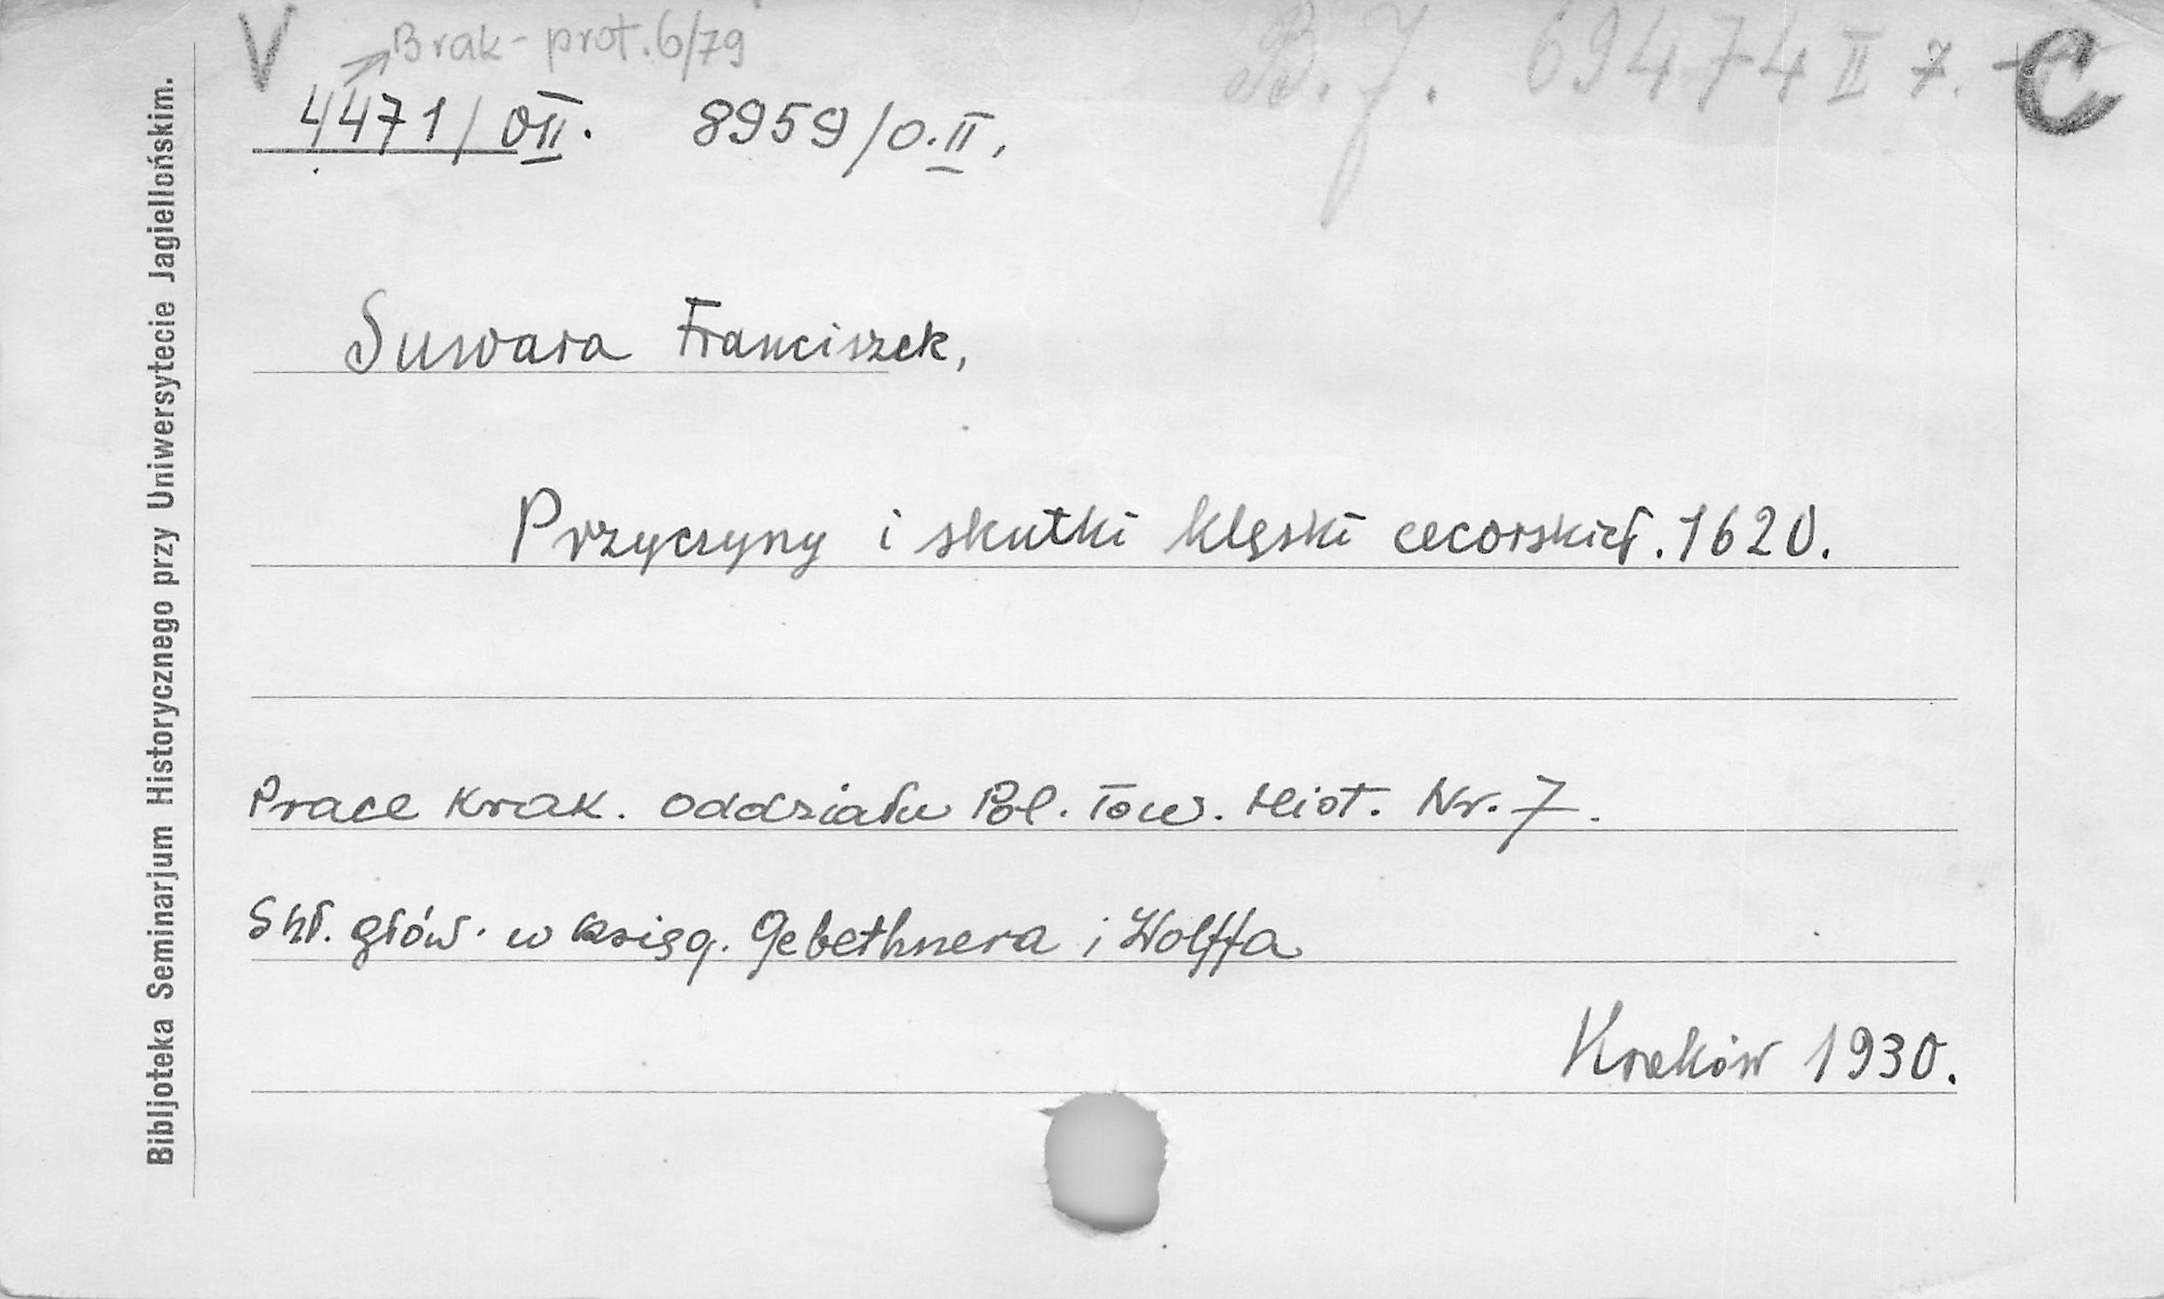 V Brak - prot. 6/79
B.J. 69474 II 7. C
4471/OII. 8959/O.II.
Suwara Franciszek,
Przyczyny i skutki klęski cecorskiej. 1620.
Prace Krak. Oddziału Pol. Tow. Hist. Nr. 7.
Skł. głów. w księg. Gebethnera i Wolffa
Kraków 1930.
Bibljoteka Seminarjum Historycznego przy Uniwersytecie Jagiellońskim.